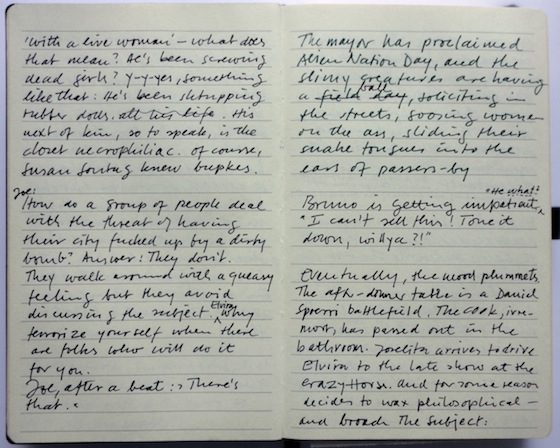 'with a live woman' – what does
that mean? He's been screwing
dead girls? Y-y-yes, something
like that: He's been shtupping
rubber dolls. all his life. His
next of kin, so to speak, is the
closet necrophiliac. Of course,
Susan Sontag knew bupkes.
Joe:
How do a group of people deal
with the threat of having
their city fucked up by a dirty
bomb? Answer: They don't.
They walk around with a queasy
feeling but they avoid
discussing the subject. Elvira: Why
terrorize yourself when there
are folks who will do it
for you.
Joe, after a beat: There's
that."
The mayor has proclaimed
Alien Nation Day, and the
slimy creatures are having
a field day, ball, soliciting in
the streets, goosing women
on the ass, sliding their
snake tongues into the
ears of passers-by
Bruno is getting impatient, "He what?
"I can't sell this! Tone it
down, willya?!"
Eventually, the mood plummets.
The after-dinner table is a Daniel
Spoerri battlefield. The cook,
has passed out in the
bathroom. Joselita arrives to drive
Elvira to the late show at the
Crazy Horse. and for some reason
decides to wax philosophical –
and broach The Subject: